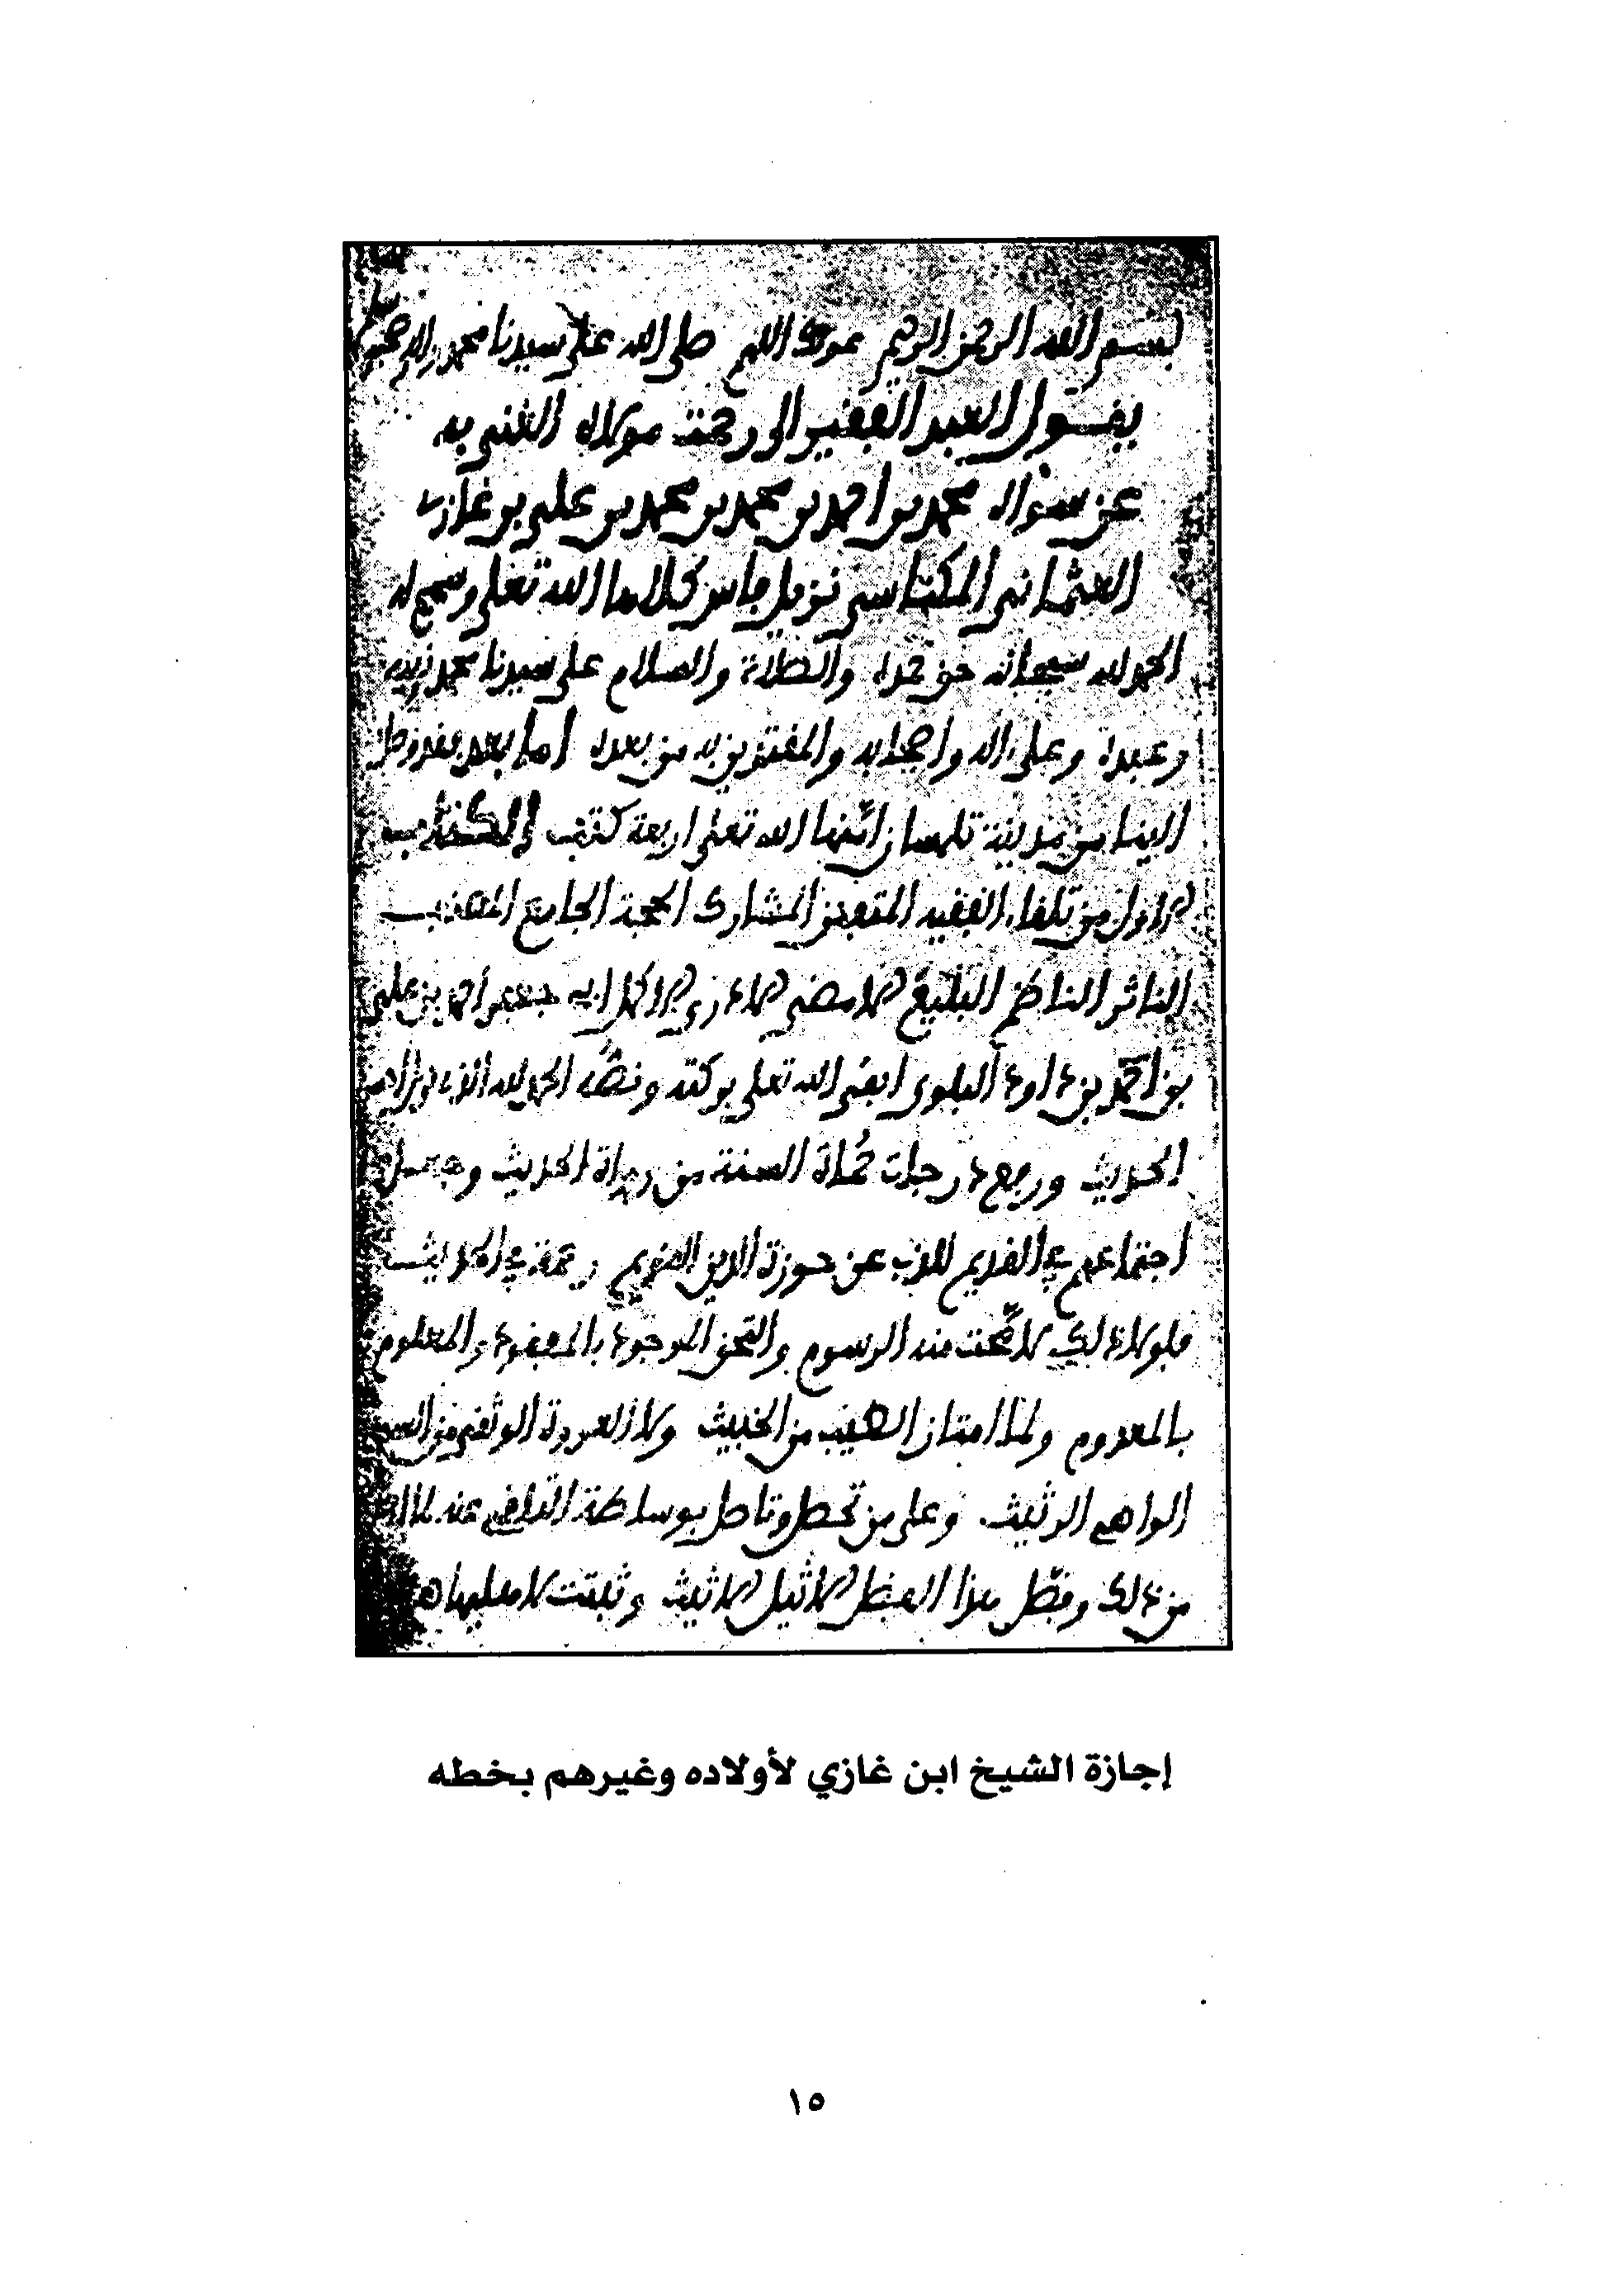 بسم الله الرحمن الرحيم عونك اللهم صلى الله على سيدنا محمد
يقول العبد الفقير الى رحمت مولاه الغني به
عن سواه محمد بن احمد بن محمد بن محمد بن علي بن غازي
العثماني المكناسي نزيل فاس كلاها الله تعلى وسمح له
الحمد لله سبحانه حق حمده والصلاة والسلام على سيدنا محمد نبيه
وعبده وعلى اله واصحابه والمقتدين به من بعده اما بعد فقد وصل
الينا من مدينة تلمسان امنها الله تعلى اربعة كتب الكتاب
الاول من تلقاء الفقيه المتفنن المشارك الحجة الجامع المصنف
الناثر الناظم البليغ الامضى الادرى الاكمل ابي جعفر احمد بن علي
بن احمد بن داود البلوي ابقى الله تعلى بركته ونصه الحمد لله الذي
الحديث ورفع درجات حماة السنة من رواة الحديث وجعل
اجتماعهم في القديم للذب عن حوزة الدين القويم في الحديث
فلولا ذلك لامحت منه الرسوم والتحق الموجود بالمفقود والمعلوم
بالمعدوم ولما امتاز الطيب من الخبيث ولا العروة الوثقى من
الواهي الرثيث وعلى من تحصل وتاصل بوساطة التلقي عنه
من ذلك وفضل هذا الفضل الاثيل الاثيث وثبتت
إجازة الشيخ ابن غازي لأولاده وغيرهم بخطه
١٥